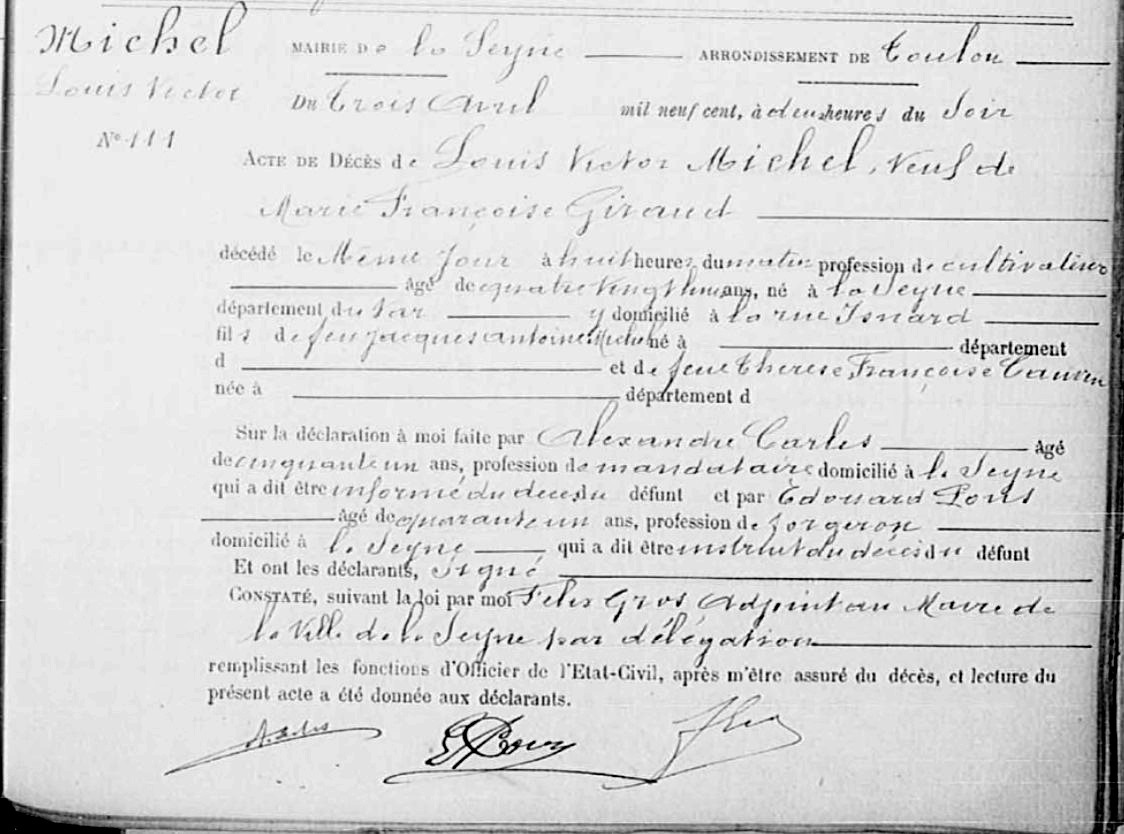 Michel
Louis Victor
N° 111
MAIRIE De la Seyne ARRONDISSEMENT DE Toulon
Du Trois Avril mil neuf cent, à deux heures du Soir
ACTE DE DÉCÈS de Louis Victor Michel, Veuf de
Marie Françoise Giraud
décédé le Même jour à huit heures du matin profession de cultivateur
âgé de quatre Vingt ans, né à la Seyne
département du Var y domicilié à la rue Isnard
fils de feu Jacques Antoine Michel né à département
d et de feue Therese, Françoise
née à département d
Sur la déclaration à moi faite par Alexandre Carles âgé
de cinquante un ans, profession de mandataire domicilié à la Seyne
qui a dit être informé du décès du défunt et par Edouard Pons
âgé de quarante un ans, profession de forgeron
domicilié à la Seyne qui a dit être instruit du décès du défunt
Et ont les déclarants, signé
CONSTATÉ, suivant la loi par moi Felix Gros Adjoint au Maire de
la Ville de la Seyne par délégation
remplissant les fonctions d'Officier de l'Etat-Civil, après m'être assuré du décès, et lecture du
présent acte a été donnée aux déclarants.